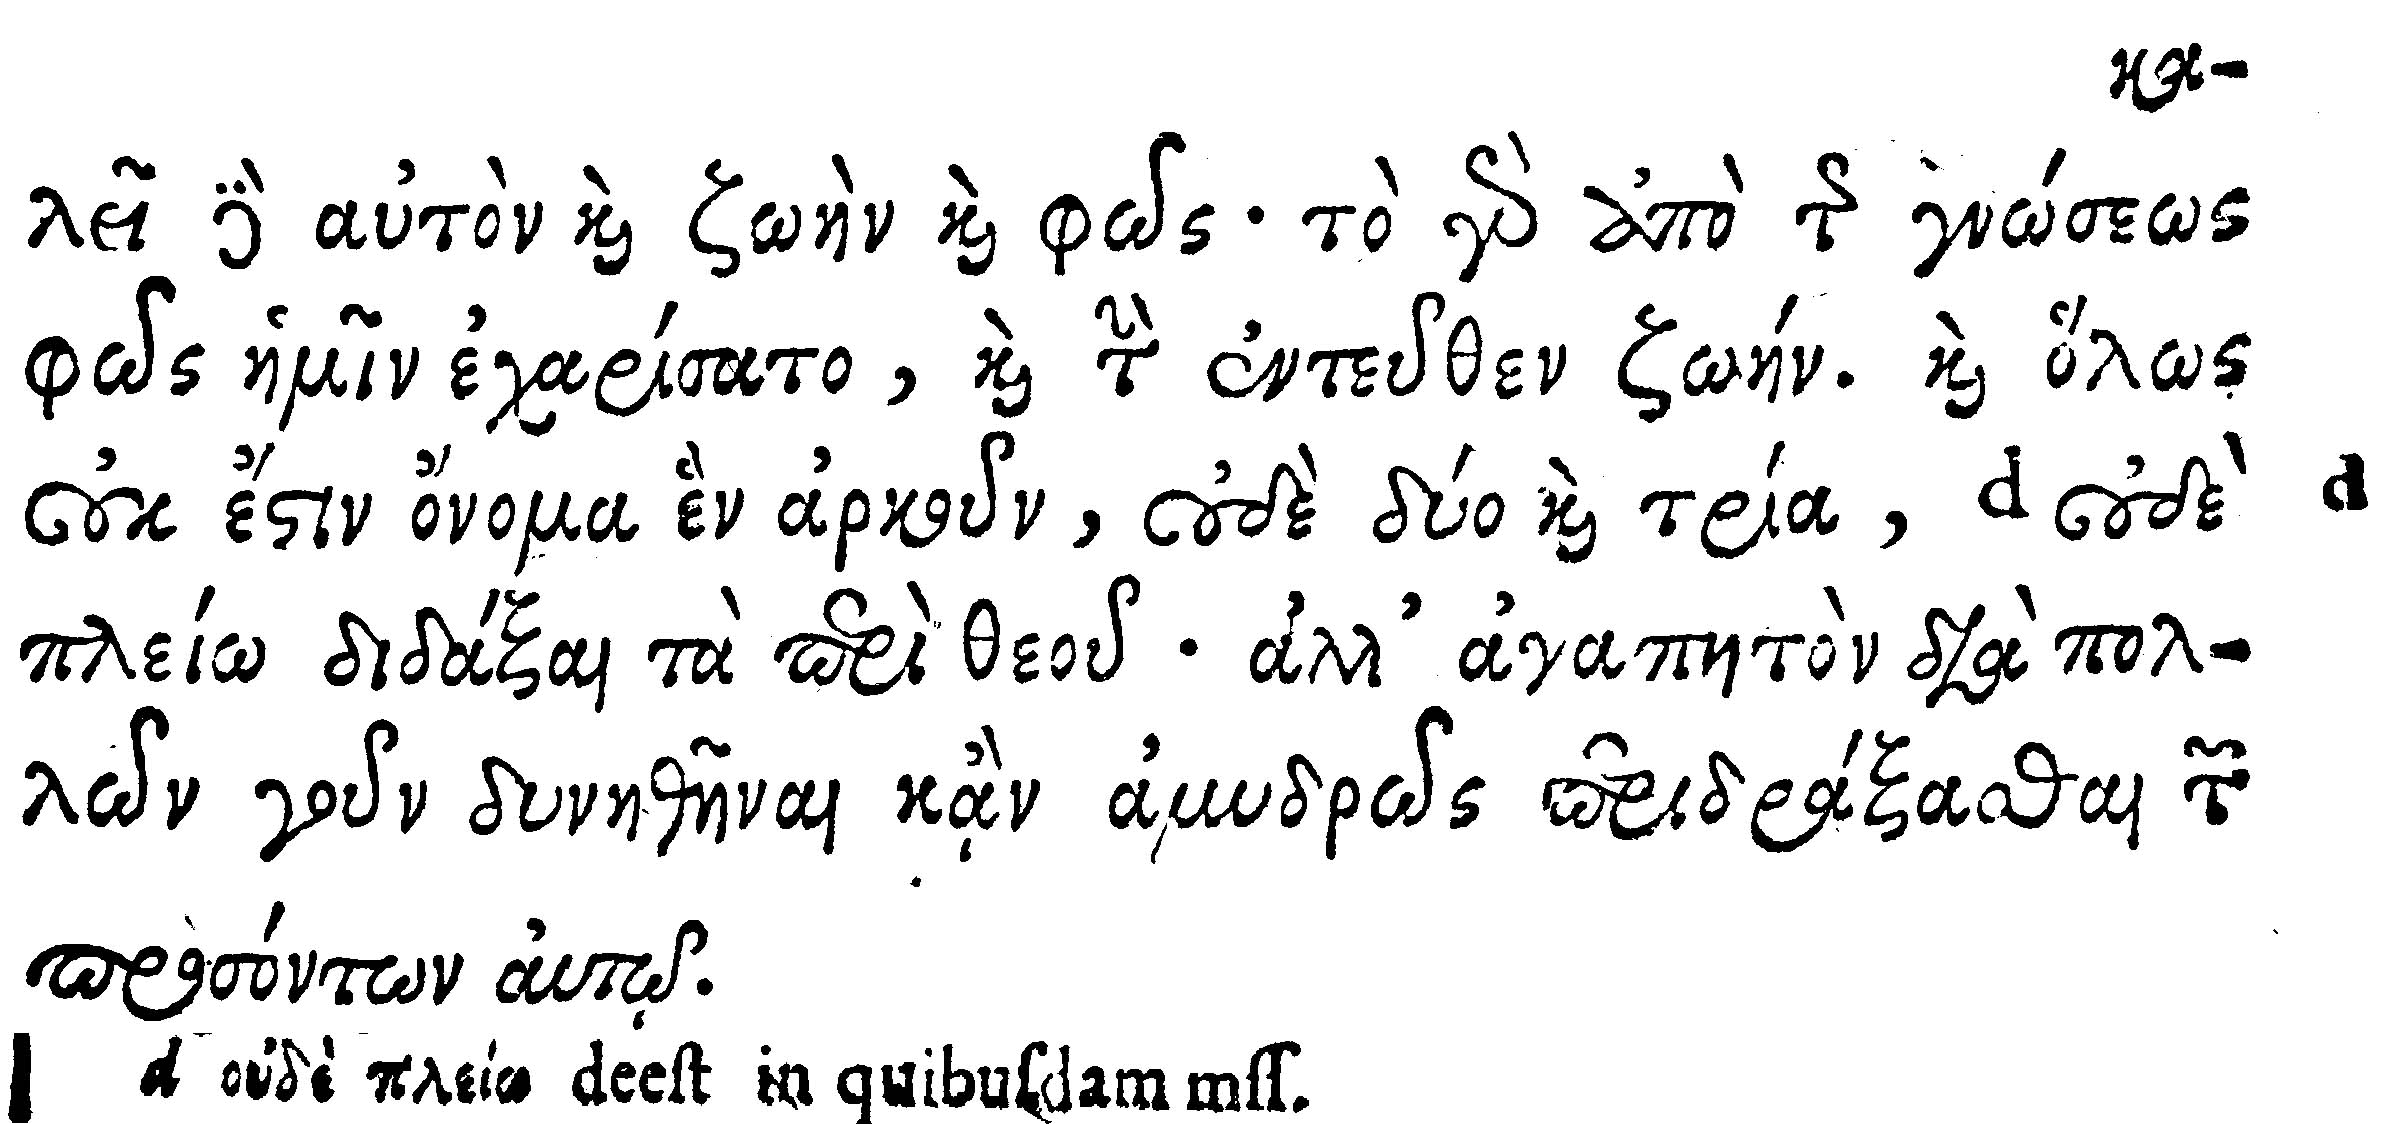 κα-
λεῖ δὲ αὐτὸν καὶ ζωὴν καὶ φῶς· τὸ γὰρ ἀπὸ τῆς γνώσεως
φῶς ἡμῖν ἐχαρίσατο, καὶ τὴν ἐντεῦθεν ζωήν. καὶ ὅλως
οὐκ ἔστιν ὄνομα ἓν ἀρκοῦν, οὐδὲ δύο καὶ τρία, d οὐδὲ d
πλείω διδάξαι τὰ περὶ θεοῦ· ἀλλ' ἀγαπητὸν διὰ πολ-
λῶν γοῦν δυνηθῆναι κᾂν ἀμυδρῶς περιδράξασθαι τῶν
προσόντων ἀυτῷ.
d οὐδὲ πλείω deeſt in quibuſdam mſſ.